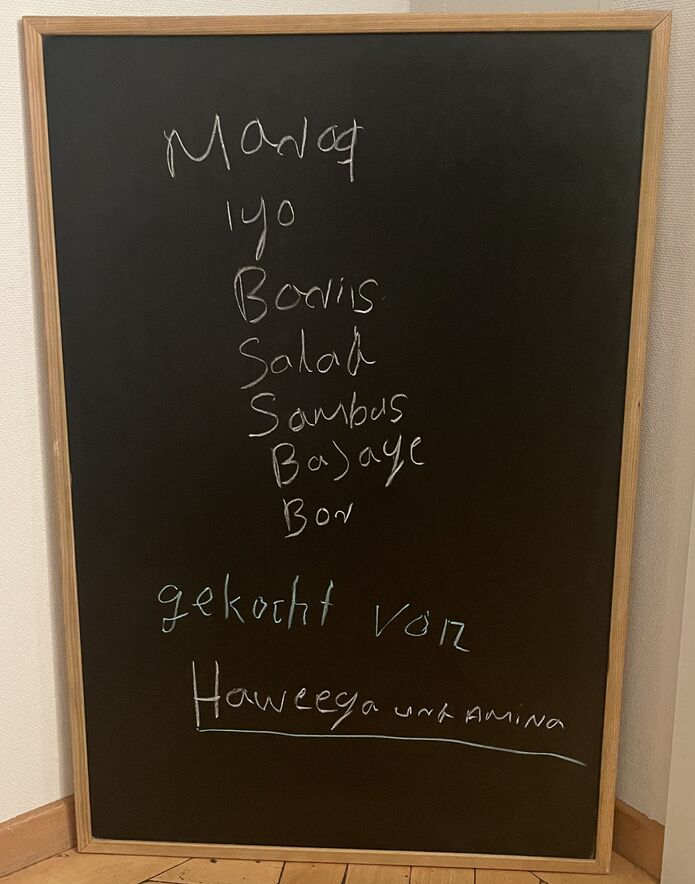 Maraq
iyo
Bariis
Salad
Sambus
Bajaye
gekocht von
Haweeya und AMiNa